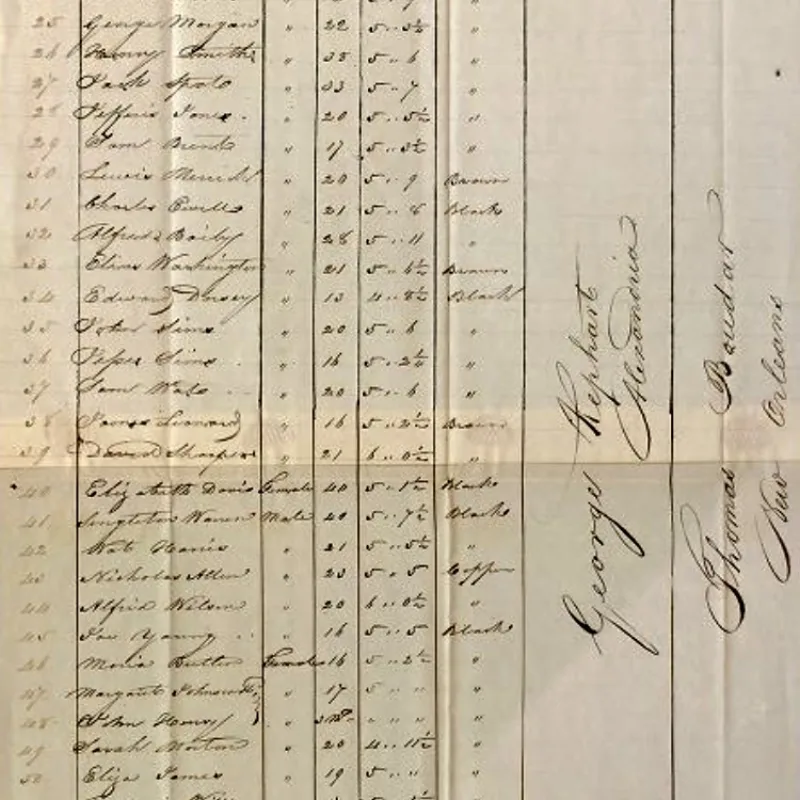 25 George Morgan " 22 5 .. 3½ "
26 Henry Smith " 35 5 .. 6 "
27 Jack " 33 5 .. 7 "
28 Jefferis Jones . " 20 5 .. 5½ "
29 Sam " 17 5 .. 3½ "
30 Lewis " 20 5 .. 9 Brown
31 Charles Ewells " 21 5 .. 8 Black
32 Alfred Baily " 28 5 .. 11 "
33 Washington " 21 5 .. 6½ Brown
34 Edward Dorsey " 13 4 .. 8½ Black
35 John Sims " 20 5 .. 6 "
36 Sims . " 16 5 .. 2¼ "
37 Sam " 20 5 .. 6 "
38 James Leonard " 16 5 .. 2½ Brown
39 David " 21 6 .. 0½ "
40 Elizabeth Davis Female 40 5 .. 1½ Black
41 Singleton Warren Male 40 5 .. 7½ Black
42 Wat Harris " 21 5 .. 5½ "
43 Nicholas Allen " 23 5 .. 5 Copper
44 Alfred Wilson " 20 6 .. 0½ "
45 Joe Young .. " 16 5 .. 5 Black
46 Maria Butler Female 16 5 .. 2½ "
47 Margaret Johnson " 17 5 .. " "
48 John Henry " " " " "
49 Sarah Morton " 20 4 .. 11½ "
50 Eliza James " 19 5 .. " "
George Kephart
Alexandria
Thomas Boudar
New Orleans